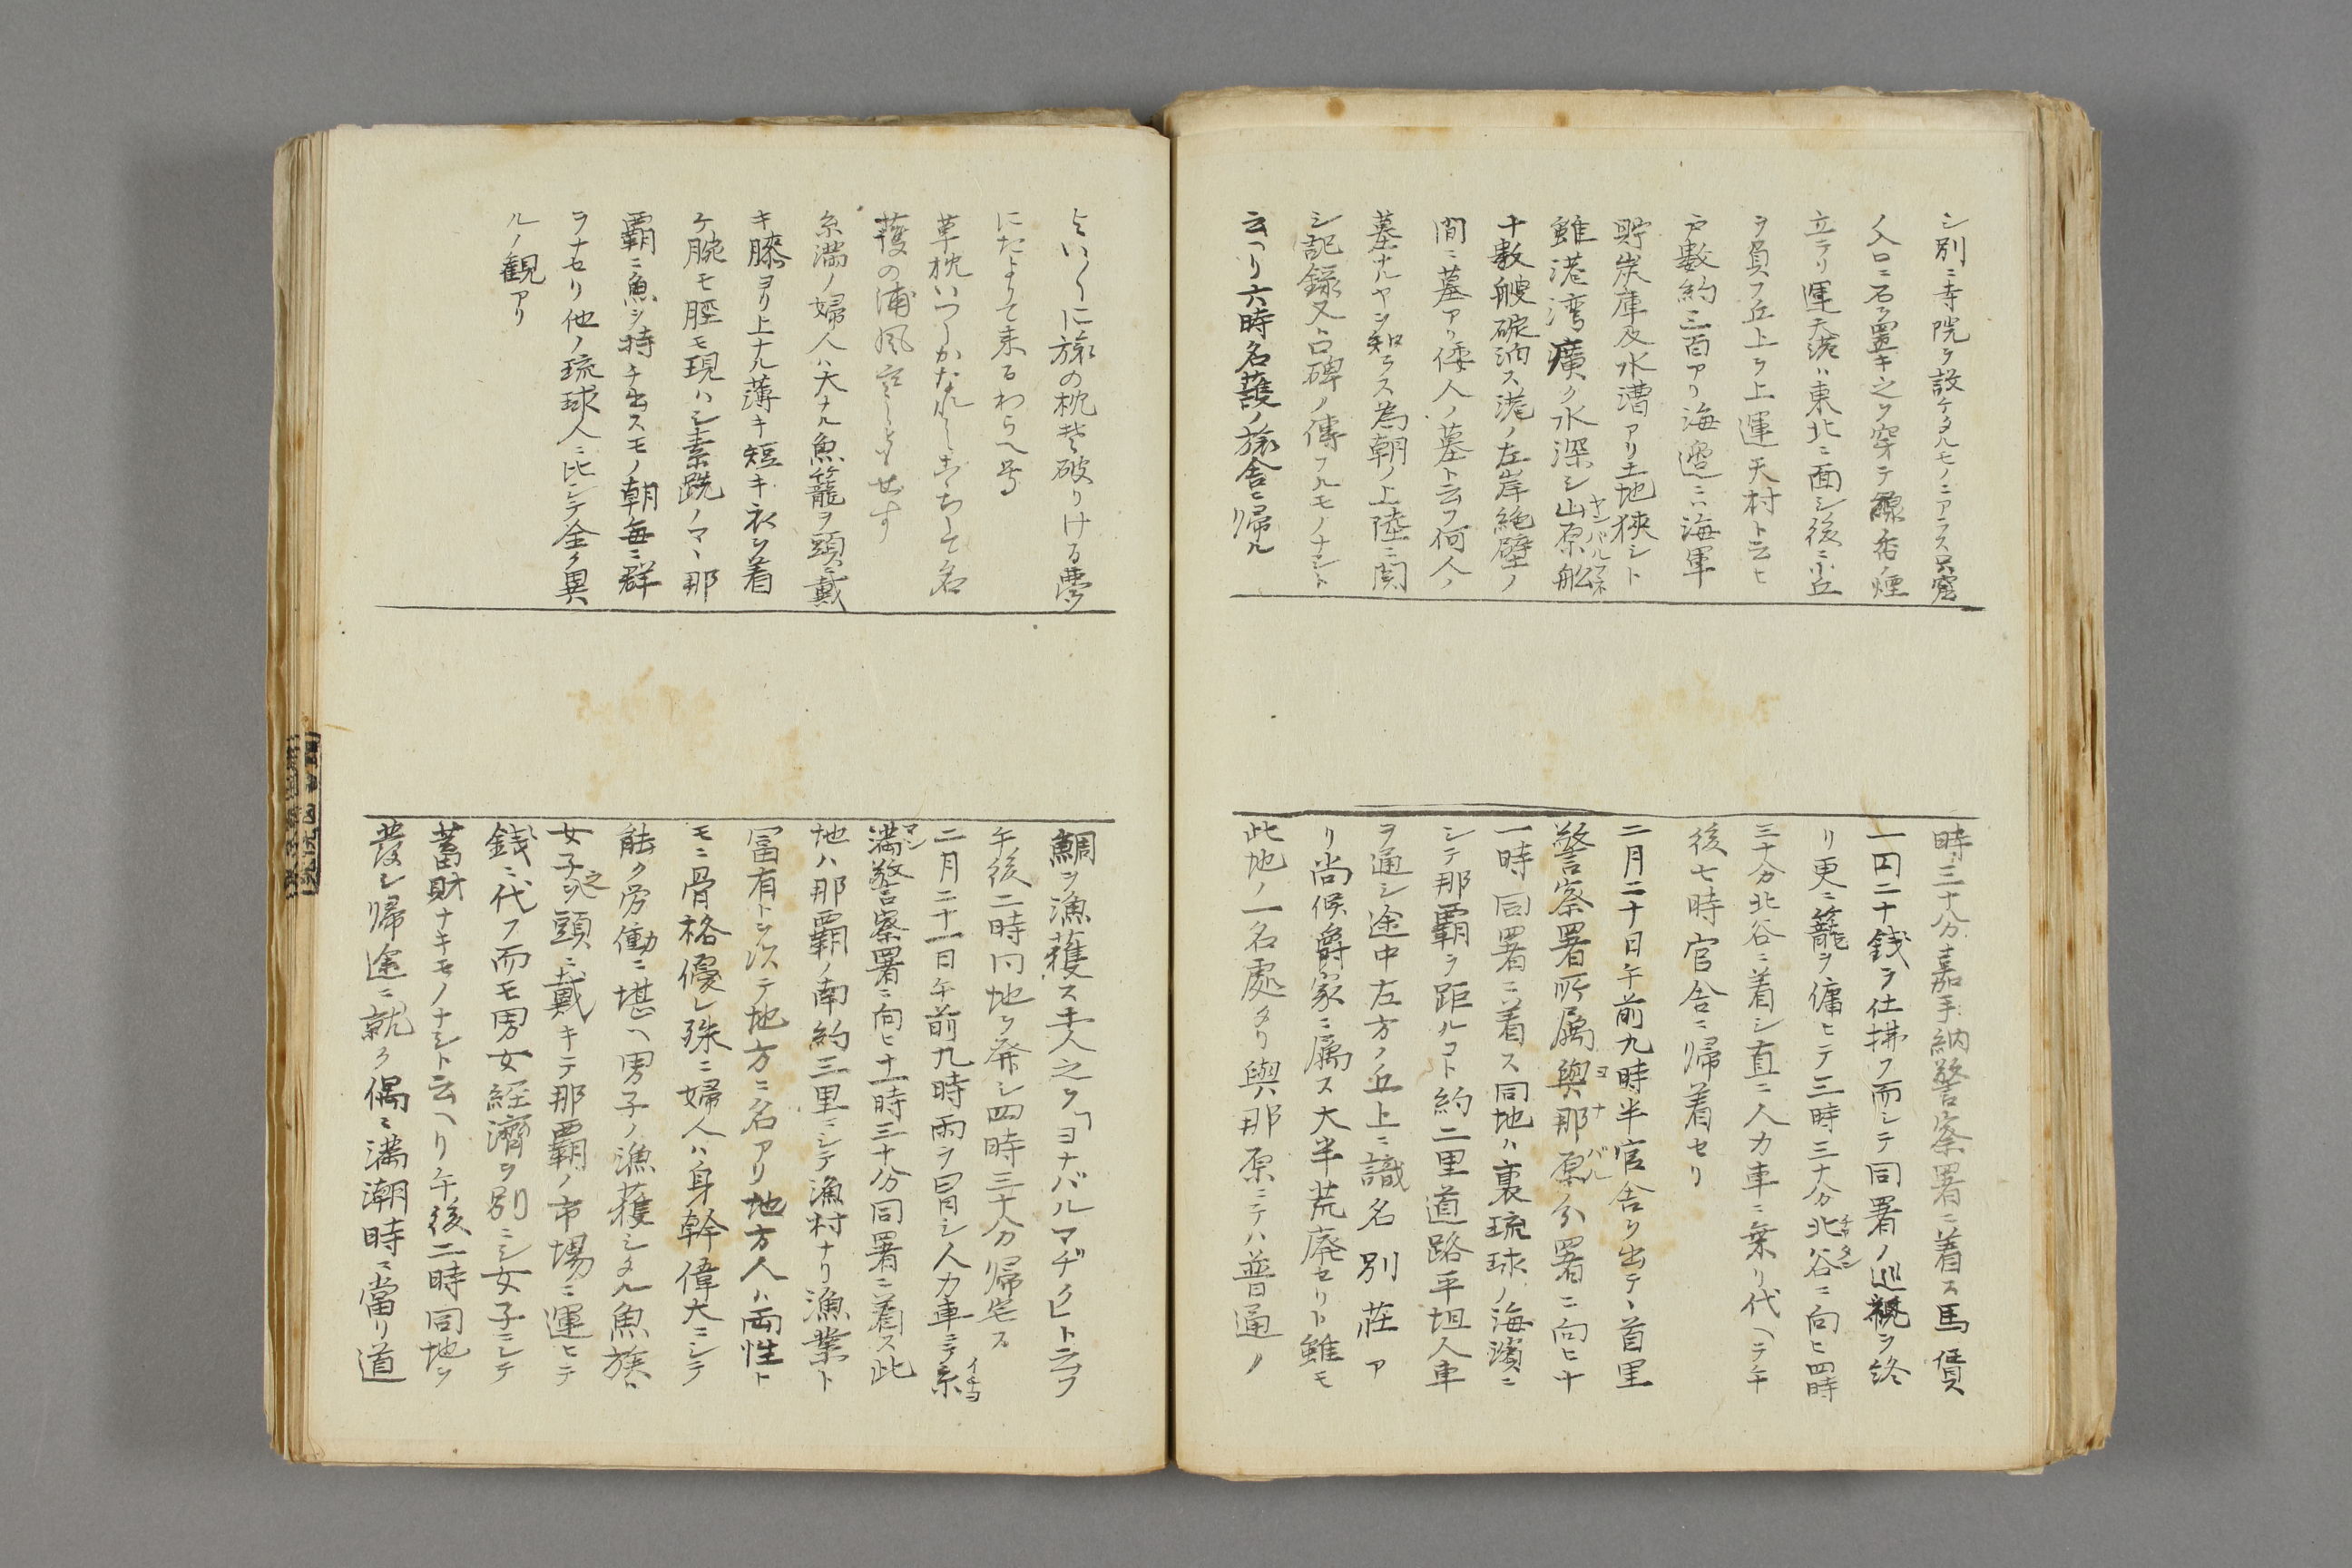 シ別ニ寺院ヲ設ケタルモノニアラス只窟
ノ入口ニ石ヲ置キ之ヲ穿テ線香ノ煙
立テリ運天港ハ東北ニ面シ後ニ小丘
ヲ負フ丘上ヲ上運天村ト云ヒ
戸數約三百アリ海邊ニハ海軍
貯炭庫及水漕アリ土地狹シト
雖港湾廣ク水深シ山原船
ヤンバルフネ
十數艘碇泊ス港ノ左岸絶壁ノ
間ニ墓アリ倭人ノ墓ト云フ何人ノ
墓ナルヤヲ知ラス為朝ノ上陸ニ関
シ記録又ハ口碑ノ傳フルモノナシト
云ヘリ六時名護ノ旅舎ニ帰ル
時三十分嘉手納警察署ニ着ス馬賃
一円二十銭ヲ仕拂フ而シテ同署ノ巡視ヲ終
リ更ニ籠ヲ傭ヒテ三時三十分北谷ニ向ヒ四時
チヤタン
三十分北谷ニ着シ直ニ人力車ニ乗リ代ヘテ午
後七時官舎ニ帰着セリ
二月二十日午前九時半官舎ヲ出テ、首里
警察署所属與那原分署ニ向ヒ十
ヨナバル
一時同署ニ着ス同地ハ裏琉球ノ海濱ニ
シテ那覇ヲ距ルコト約二里道路平坦人車
ヲ通シ途中左方ノ丘上ニ識名別荘ア
リ尚候爵家ニ属ス大半荒廃セリト雖モ
此地ノ一名處タリ與那原ニテハ普通ノ
に旅の枕も破りける夢
にたよりて来るわらへ号
草枕いつしかなれしこゝちして名
護の浦風
糸満ノ婦人ハ大ナル魚籠ヲ頭ニ戴
キ膝ヨリ上ナル薄キ短キ衣ヲ着
ケ腕モ脛モ現ハシ素跣ノマヽ那
覇ニ魚ヲ持チ出スモノ朝毎ニ群
ヲナセリ他ノ琉球人ニ比シテ全ク異
ルノ観アリ
鯛ヲ漁獲ス土人之ヲ「ヨナバルマヂクヒト云フ
午後二時同地ヲ発シ四時三十分帰宅ス
二月二十一日午前九時雨ヲ冒シ人力車ニテ糸
イト
満警察署ニ向ヒ十一時三十分同署ニ着ス此
マン
地ハ那覇ノ南約三里ニシテ漁村ナリ漁業ト
冨有トヲ以テ地方ニ名アリ地方人ハ両性ト
モニ骨格優レ殊ニ婦人ハ身幹偉大ニシテ
能ク労働ニ堪ヘ男子ノ漁獲シタル魚族ハ
女子之ヲ頭ニ戴キテ那覇ノ市場ニ運ヒテ
銭ニ代フ而モ男女経濟ヲ別ニシ女子ニシテ
蓄財ナキモノナシト云ヘリ午後二時同地ヲ
發シ帰途ニ就ク偶ニ満潮時ニ當リ道